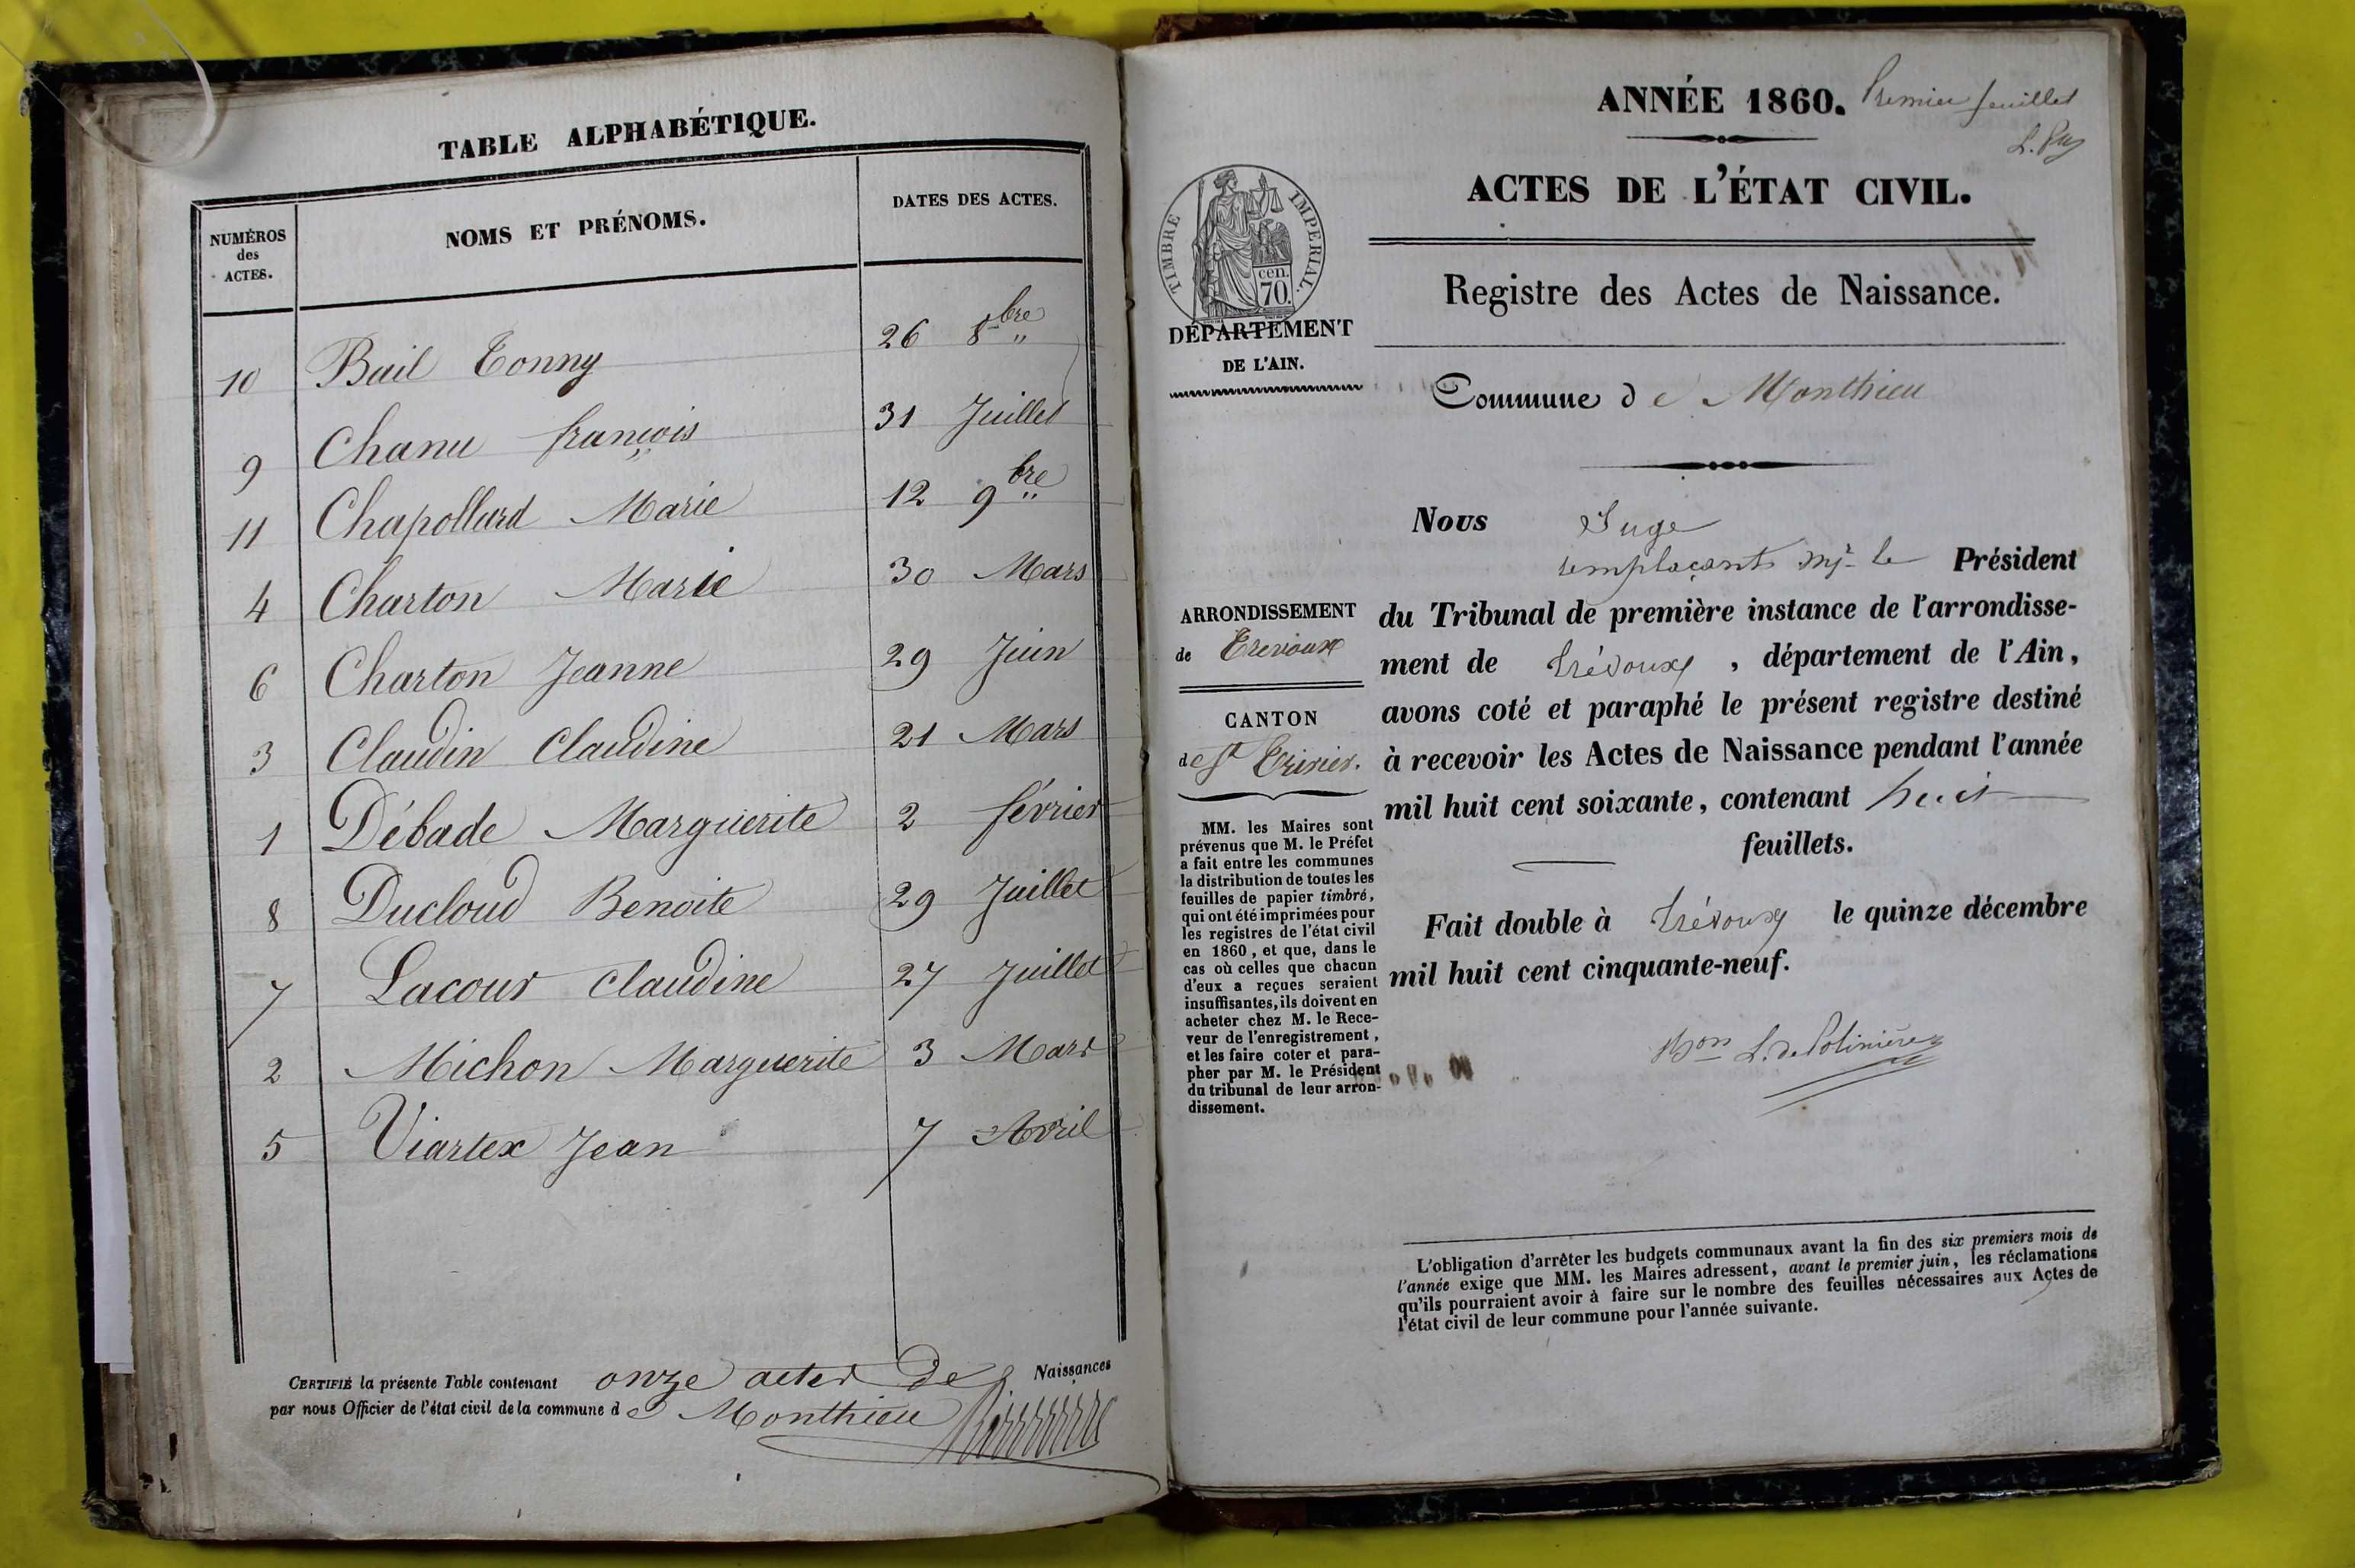 TABLE ALPHABÉTIQUE.
NUMÉROS des ACTES.
NOMS ET PRÉNOMS.
DATES DES ACTES.
10 Buil Tonny 26 8bre
9 Chanu françois 31 Juillet
11 Chapollard Marie 12 9bre
4 Charton Marie 30 Mars
6 Charton Jeanne 29 Juin
3 Claudin Claudine 21 Mars
1 Débade Marguerite 2 février
8 Ducloud Benoite 29 Juillet
7 Lacour Claudine 27 Juillet
2 Michon Marguerite 3 Mars
5 Viartex Jean 7 Avril
CERTIFIÉ la présente Table contenant onze actes de Naissances
par nous Officier de l'état civil de la commune de Monthieu
ANNÉE 1860. Premier feuillet
ACTES DE L'ÉTAT CIVIL.
TIMBRE IMPERIAL.
cen.
70.
Registre des Actes de Naissance.
DÉPARTEMENT
DE L'AIN.
Commune de Monthieu
Nous Juge
remplaçant Mr le Président
du Tribunal de première instance de l'arrondisse-
ment de Trévoux, département de l'Ain,
avons coté et paraphé le présent registre destiné
à recevoir les Actes de Naissance pendant l'année
mil huit cent soixante, contenant huit
feuillets.
Fait double à Trévoux le quinze décembre
mil huit cent cinquante-neuf.
Bon L. de Polinière
ARRONDISSEMENT
de Trevoux
CANTON
de St Trivier.
MM. les Maires sont
prévenus que M. le Préfet
a fait entre les communes
la distribution de toutes les
feuilles de papier timbré,
qui ont été imprimées pour
les registres de l'état civil
en 1860, et que, dans le
cas où celles que chacun
d'eux a reçues seraient
insuffisantes, ils doivent en
acheter chez M. le Rece-
veur de l'enregistrement,
et les faire coter et para-
pher par M. le Président
du tribunal de leur arron-
dissement.
L'obligation d'arrêter les budgets communaux avant la fin des six premiers mois de
l'année exige que MM. les Maires adressent, avant le premier juin, les réclamations
qu'ils pourraient avoir à faire sur le nombre des feuilles nécessaires aux Actes de
l'état civil de leur commune pour l'année suivante.